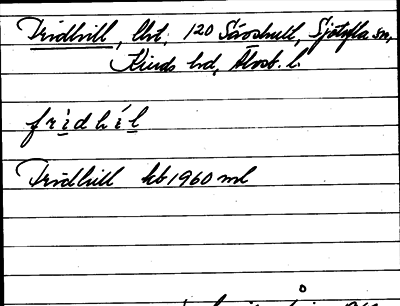 Fridhill, lht, 120 Såvshult, Sjötofta sn,
Kinds hd, Älvsb. l.
fridhil
Fridhill kb 1960 ml